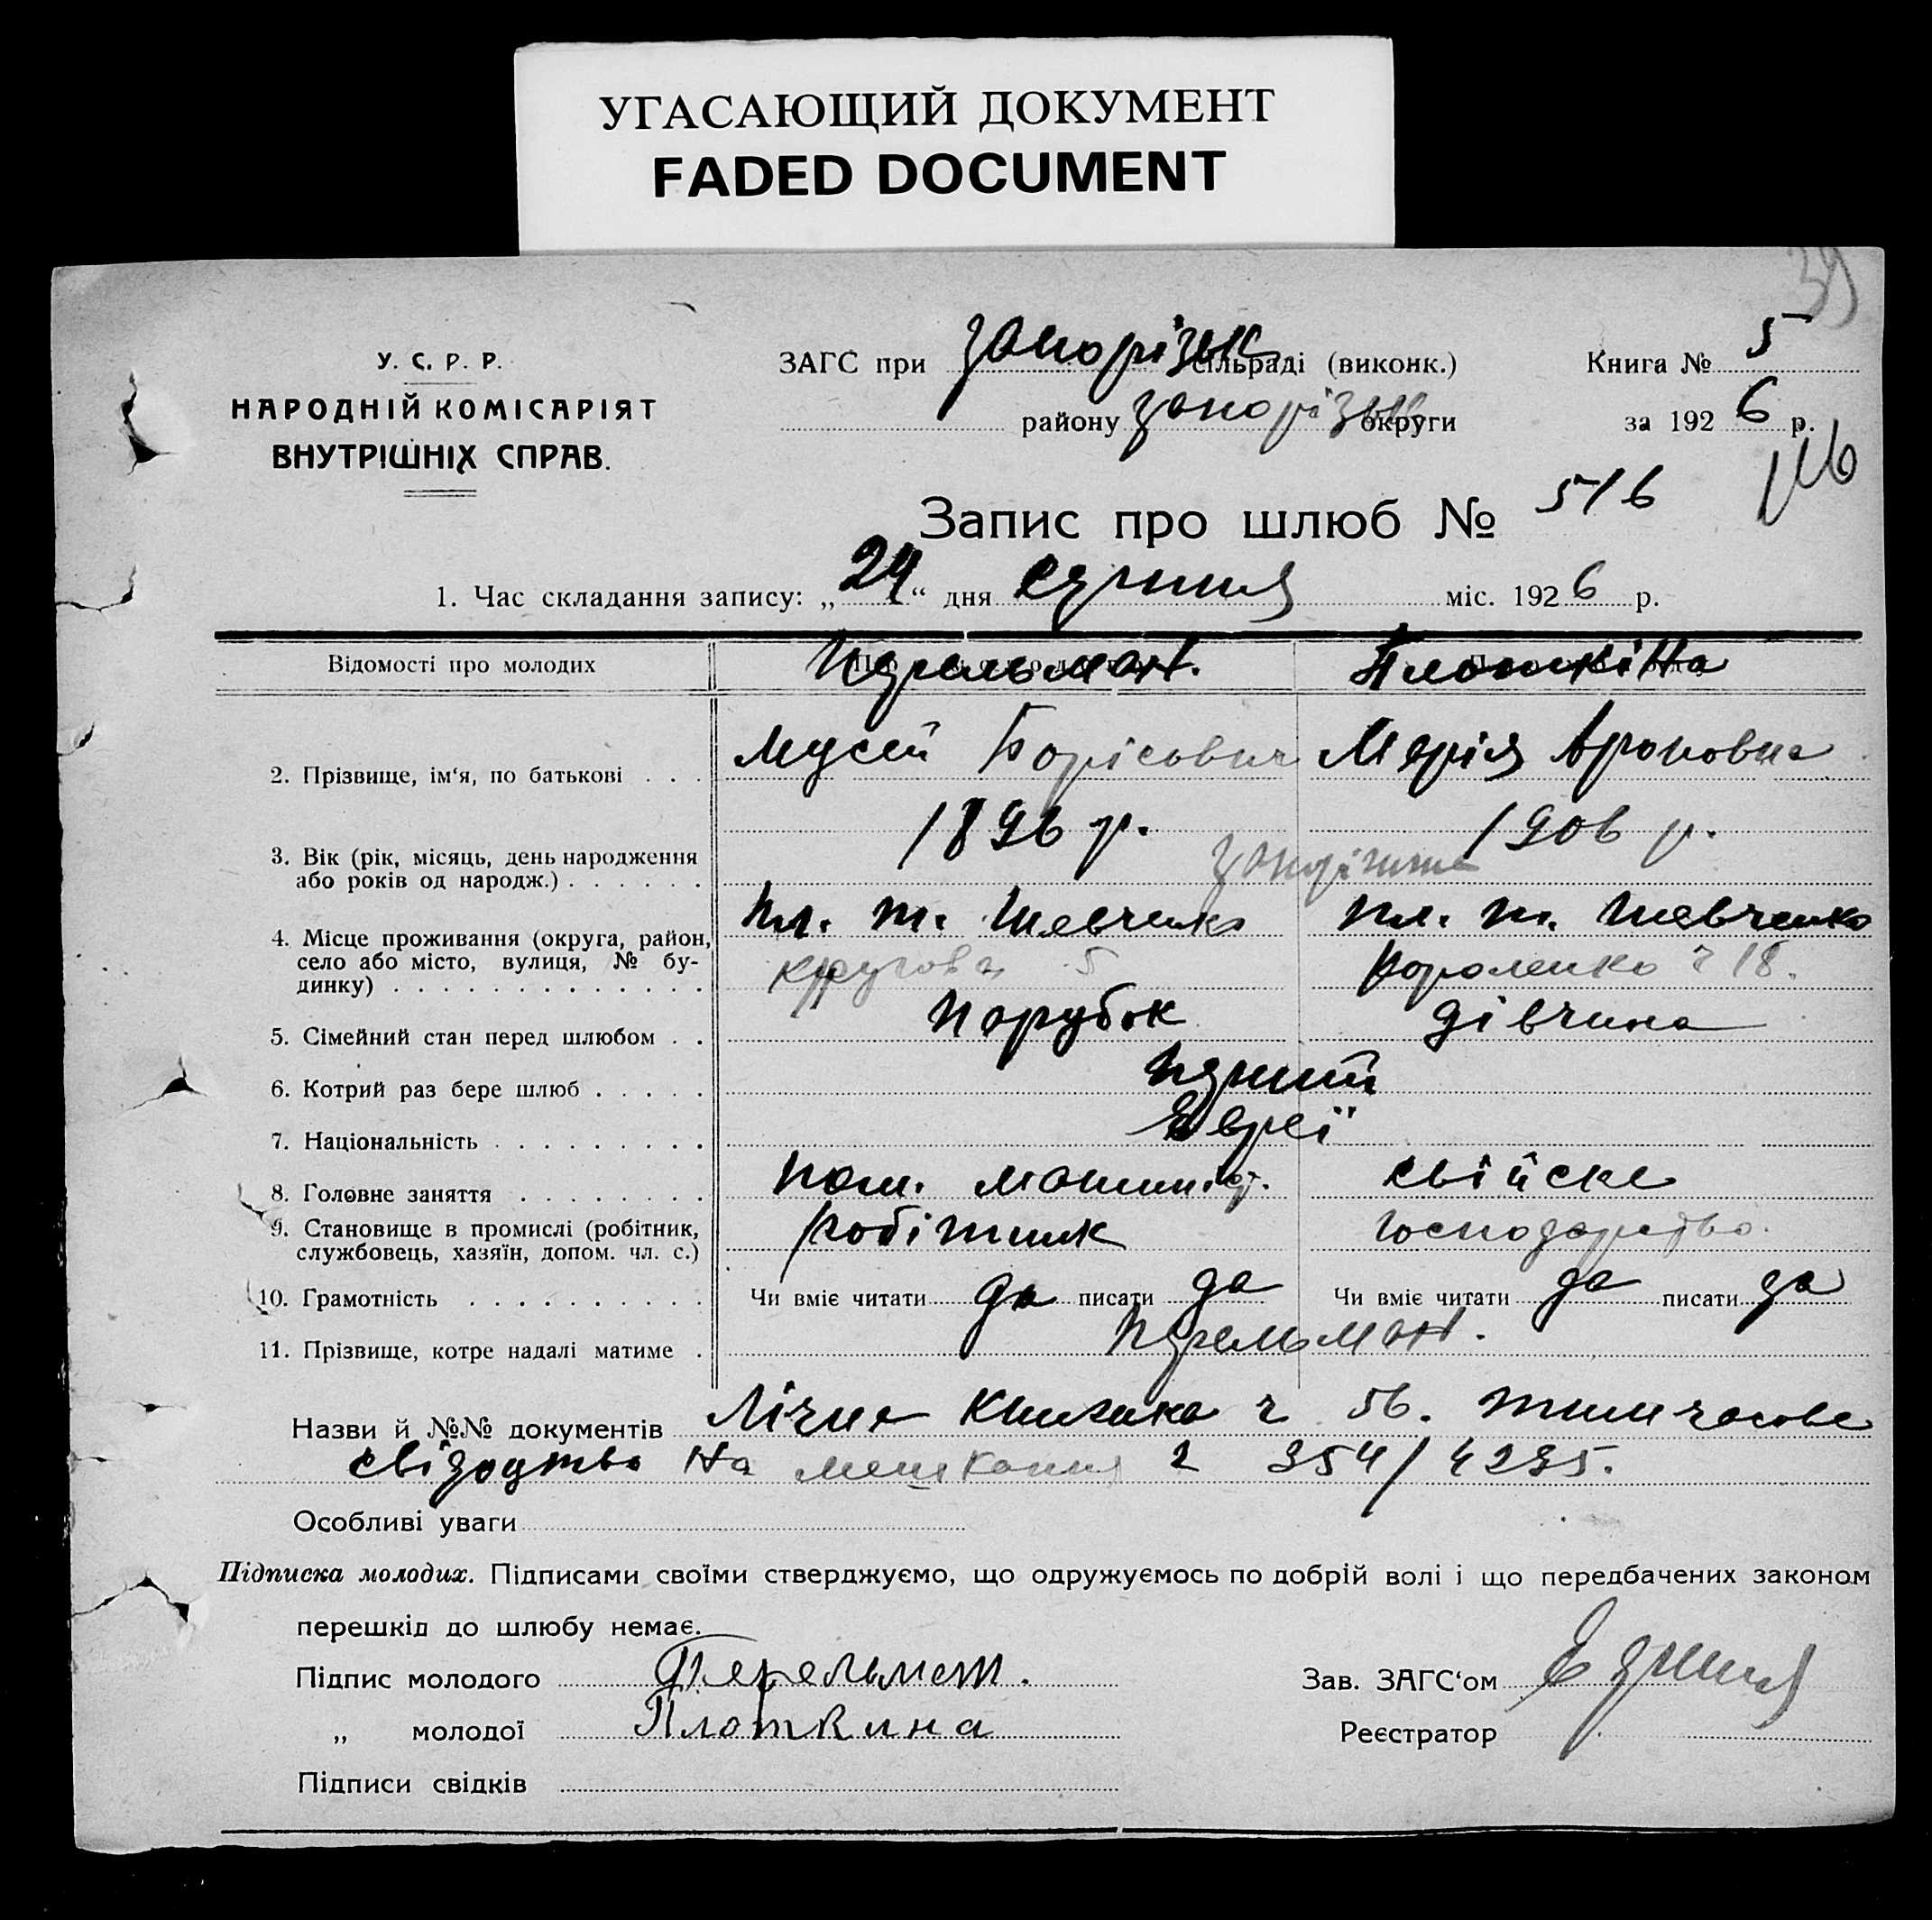 УГАСАЮЩИЙ ДОКУМЕНТ
FADED DOCUMENT
У. С. Р. Р.
НАРОДНІЙ КОМІСАРІЯТ
ВНУТРІШНІХ СПРАВ.
ЗАГС при Запорізьк. сільраді (виконк.)
району Запорізьк округи
Книга № 5
за 1926 р.
Запис про шлюб № 516
1. Час складання запису: „24“ дня Серпня міс. 1926 р.
Відомості про молодих Перельман. Плоткіна
2. Прізвище, ім‘я, по батькові . . . Мусей Борісович Марія Ароновна
3. Вік (рік, місяць, день народження 1896 р. 1906 р.
або років од народж.) . . . . . .
Запоріжжа
4. Місце проживання (округа, район, пл. т. Шевченко пл. т. Шевченко
село або місто, вулиця, № бу- 5 Короленко ч 18.
динку) . . . . . . . . . . . . .
5. Сімейний стан перед шлюбом . . Парубок дівчина
6. Котрий раз бере шлюб . . . . . перший
7. Національність . . . . . . . . . Евреї
8. Головне заняття . . . . . . . . пом. свійске
9. Становище в промислі (робітник, робітник господарство.
службовець, хазяїн, допом. чл. с.)
10. Грамотність . . . . . . . . . . Чи вміє читати да писати да Чи вміє читати да писати да
11. Прізвище, котре надалі матиме . Перельман.
Назви й №№ документів Лічна Книжка ч 56. тимчасове
свідоцтво на мешкання ч 354/4235.
Особливі уваги
Підписка молодих. Підписами своїми стверджуємо, що одружуємось по добрій волі і що передбачених законом
перешкід до шлюбу немає.
Підпис молодого Перельман.
Зав. ЗАГС‘ом
„ молодої Плоткина
Реєстратор
Підписи свідків